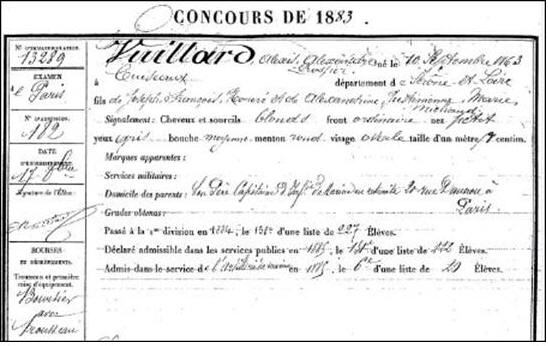 CONCOURS DE 1883.
N° D'EXAMEN
13289
EXAMEN
à Paris
N° D'ADMISSION
182
DATE
17 9bre
Signature de l'Élève.
BOURSES
ET DÉGRÈVEMENTS.
Trousseau et première
mise d'équipement.
Boursier
avec
trousseau
Vuillard Alexis Alexandre Prosper né le 10 Septembre 1863
à Cuiseaux département de Saône et Loire
fils de Joseph François Honoré et de Alexandrine Justinienne Marie Michaud
Signalement: Cheveux et sourcils blonds front ordinaire nez petit
yeux gris bouche moyenne menton rond visage ovale taille d'un mètre centim.
Marques apparentes:
Services militaires:
Domicile des parents: Son Père Capitaine d'Inf. de Marine en retraite 20 rue Daunou à
Paris
Grades obtenus:
Passé à la 1re division en 1884, le 151e d'une liste de 227 Élèves.
Déclaré admissible dans les services publics en 1885, le d'une liste de 222 Élèves.
Admis dans le service de l'artillerie de marine en 1885, le 6e d'une liste de 29 Élèves.